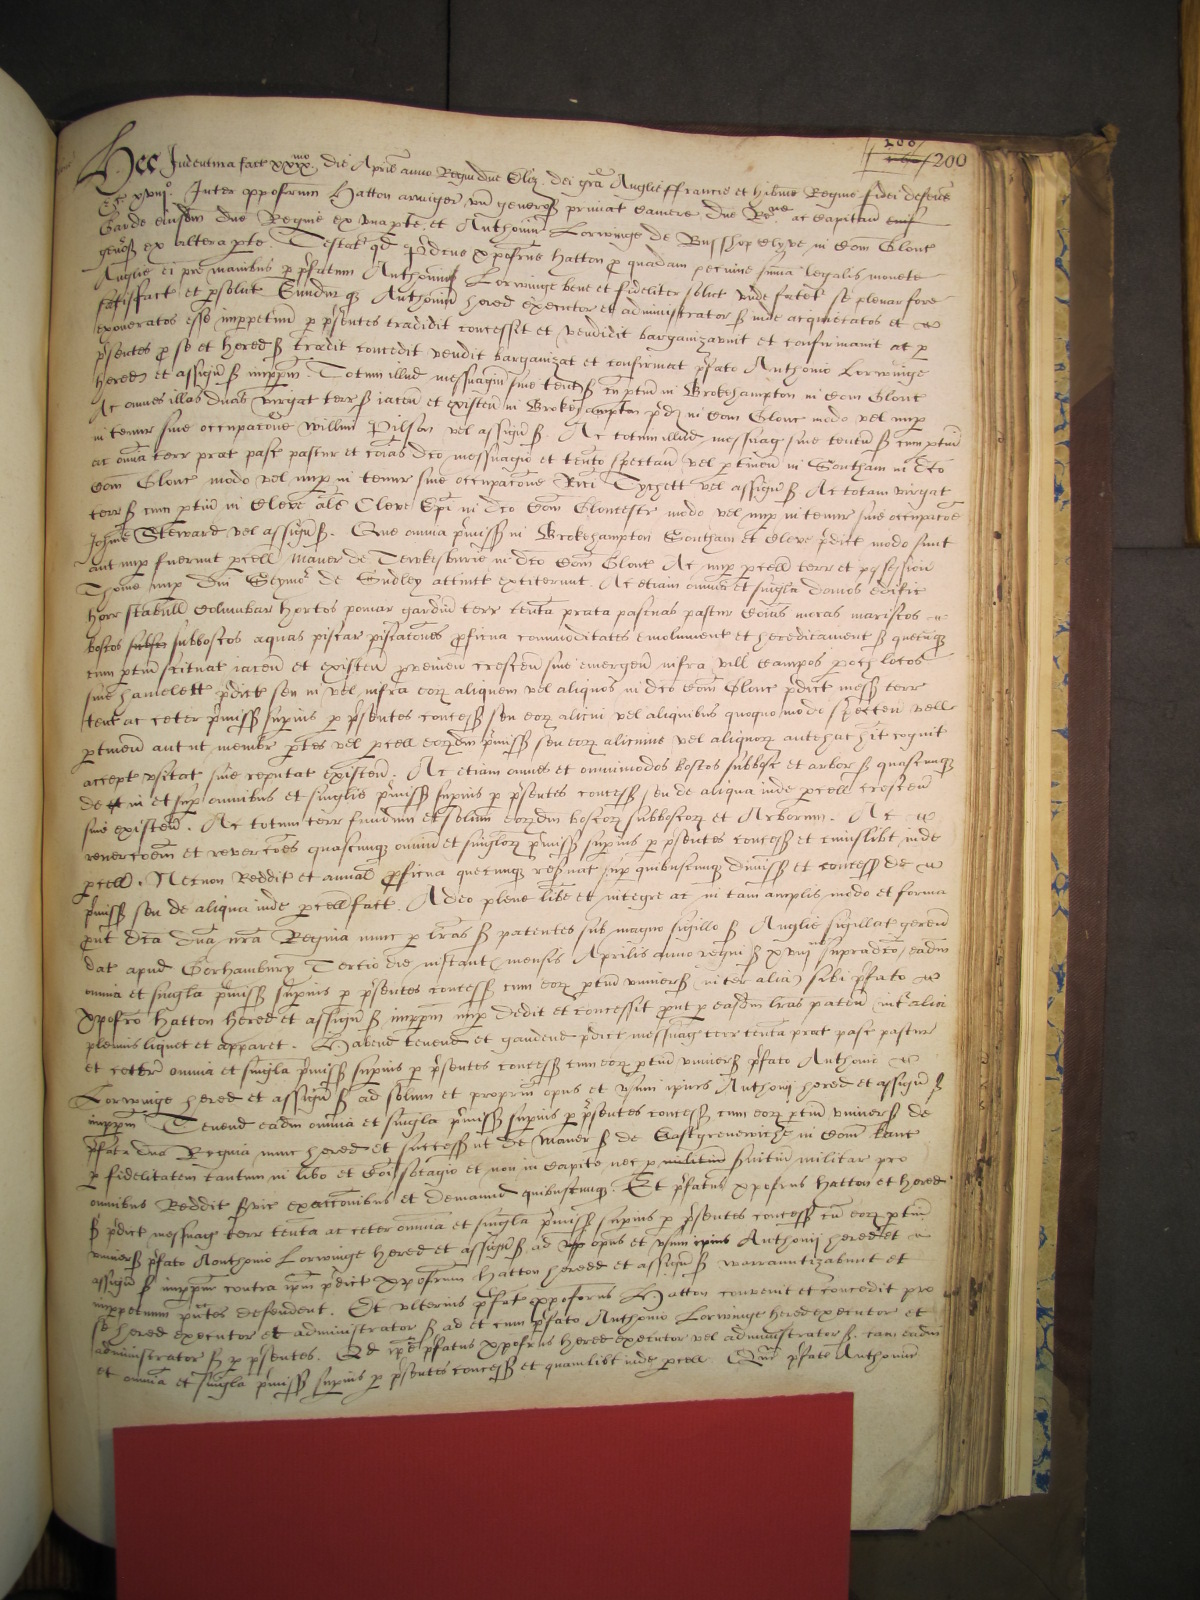 200
200
Hec Indentura fact xxixmo die Aprił anno Regni dne Eliz dei grā Anglie ffrancie et hibnie Regine fidei defens
&c xviijo Inter xpoforum Hatton armiger vn generos privat camere dne Rne ac Capitan
Garde eiusdm dne Regine ex vna pte et Anthoniu Lorwinge de Busshop Clyve in Com Glouc
genos ex altera pte Testat qd pdcus xpoforus Hatton p quadam pecunie suma legalis monete
Anglie ei pre manibus p pfatum Anthoniu Lorwinge bene et fideliter solut vnde fatet se plenar fore
satisfact et psolut Eundm q Anthoniu hered executor et administrator s inde acquietatos et
exoneratos esse imppetuu p psentes tradidit concessit et vendidit barganizavit et confirmavit ac p
psentes p se et hered s tradit concedit vendit barganizat et confirmat pfato Anthonio Lorwinge
hered et assign s imppm Totum illud messuagiu sive tent s cu ptin in Brokehampton in Com Glouc
Ac omnes illas duas virgat terr s iacen et existen in Brokehampton pd in Com Glouc modo vel nup
in tenur sive occupacone Willmi Pilson vel assign s Ac totum illud messuag sive tentu s cum ptin
ac omia terr prat pasc pastur et coias dco messuagio et tento spectan vel ptinen in Southam in dco
Com Glouc modo vel nup in tenur sive occupacone Rici Tychett vel assign s Ac totam virgat
terr s cum ptin in Cleve als Cleve Epi in dco Com Gloucestr modo vel nup in tenur sive occupacoe
Johnis Steward vel assign s Que omnia pmiss in Brokehampton Southam et Cleve pdict modo sunt
aut nup fuerunt pcell Maner de Tewkesburie in dco Com Glouc Ac nup pcell terr et possession
Thome nup Dni Seymer de Sudley attinct extiterunt Ac etiam omnes et singla domos edific
horr stabull Columbar hortos pomar gardin terr tenta prata pascuas pastur coias moras mariscos
boscos subboscos aquas piscar piscacones proficua commoditates emolument et hereditament s quecuq
cum ptin scituat iacen et existen provenien crescen sive emergen infra vill Campos poch locos
sive hamelett pdict seu in vel infra eor aliquem vel aliquos in dco Com Glouc pdict mess terr
tent ac ceter pmiss supius p psentes concess seu eor alicui vel aliquibus quoquo modo specten vell
ptinen aut ut membr ptes vel pcell eordm pmiss seu eor alicuius vel aliquor antehac hit cognit
accept vsitat sive reputat existen Ac etiam omnes et omnimodos boscos subbosc et arbor s quascunq
de in et sup omnibus et singlis pmiss supius p psentes concess seu de aliqua inde pcell crescen
sive existen Ac totum terr fundum et solum eordm boscor subboscor et Arborum Ac
revercoem et revercoes quascunq omiu et singlor pmiss supius p psentes concess et cuiuslibt inde
pcell Necnon Reddit et annal proficua quecunq reservat sup quibuscunq dimiss et concess de
pmiss seu de aliqua inde pcell fact Adeo plene libe et integre ac in tam amplis modo et forma
put dca dna nra Regina nunc p lras s patentes sub magno sigillo s Anglie sigillat geren
dat apud Gorhambury Tertio die instant mensis Aprilis anno regni s xviij supradco eadm
omnia et singla pmiss supius p psentes concess cum eor ptin vniuers inter alia sibi pfato
Xpoforo Hatton hered et assign s imppm nup dedit et concessit put p easdm lras paten int alia
plenius liquet et apparet Habend tenend et gaudend pdict messuag terr tenta prat pasc pastur
et ceter omnia et singla pmiss supius p psentes concess cum eor ptin vniuers pfato Anthonio
Lorwinge hered et assign s ad solum et propriu opus et vsum ipius Anthonij hered et assign s
imppm Tenend eadm omnia et singla pmiss supius p psentes concess cum eor ptin vniuers de
pfata dna Regina nunc hered et success ut de Maner s de Eastgrenewiche in Com Kanc
p fidelitatem tantum in libo et coi socagio et non in Capite nec p servitiu militar pro
omnibus Reddit servic exaccionibus et demand quibuscunq Et pfatus xpoforus Hatton et hered
s pdict messuag terr tenta ac ceter omnia et singla pmiss supius p psentes concess cu eor ptin
vniuers pfato Anthonio Lorwinge hered et assign s ad opus et vsum ipius Anthonij hered et
assign s imppm contra ipm pdict Xpoforum Hatton hered et assign s warrantizabunt et
imppetuum p ntes defendent Et vlterius pfat xpoforus Hatton convenit et concedit pro
se hered executor et administrator s ad et cum pfato Anthonio Lorwinge hered executor et
administrator s p psentes Qd ipe pfatus xpoforus hered executor vel administrator s tam eadm
et omnia et singla pmiss supius p psentes concess et quamlibt inde pcell Que pfate Anthonius